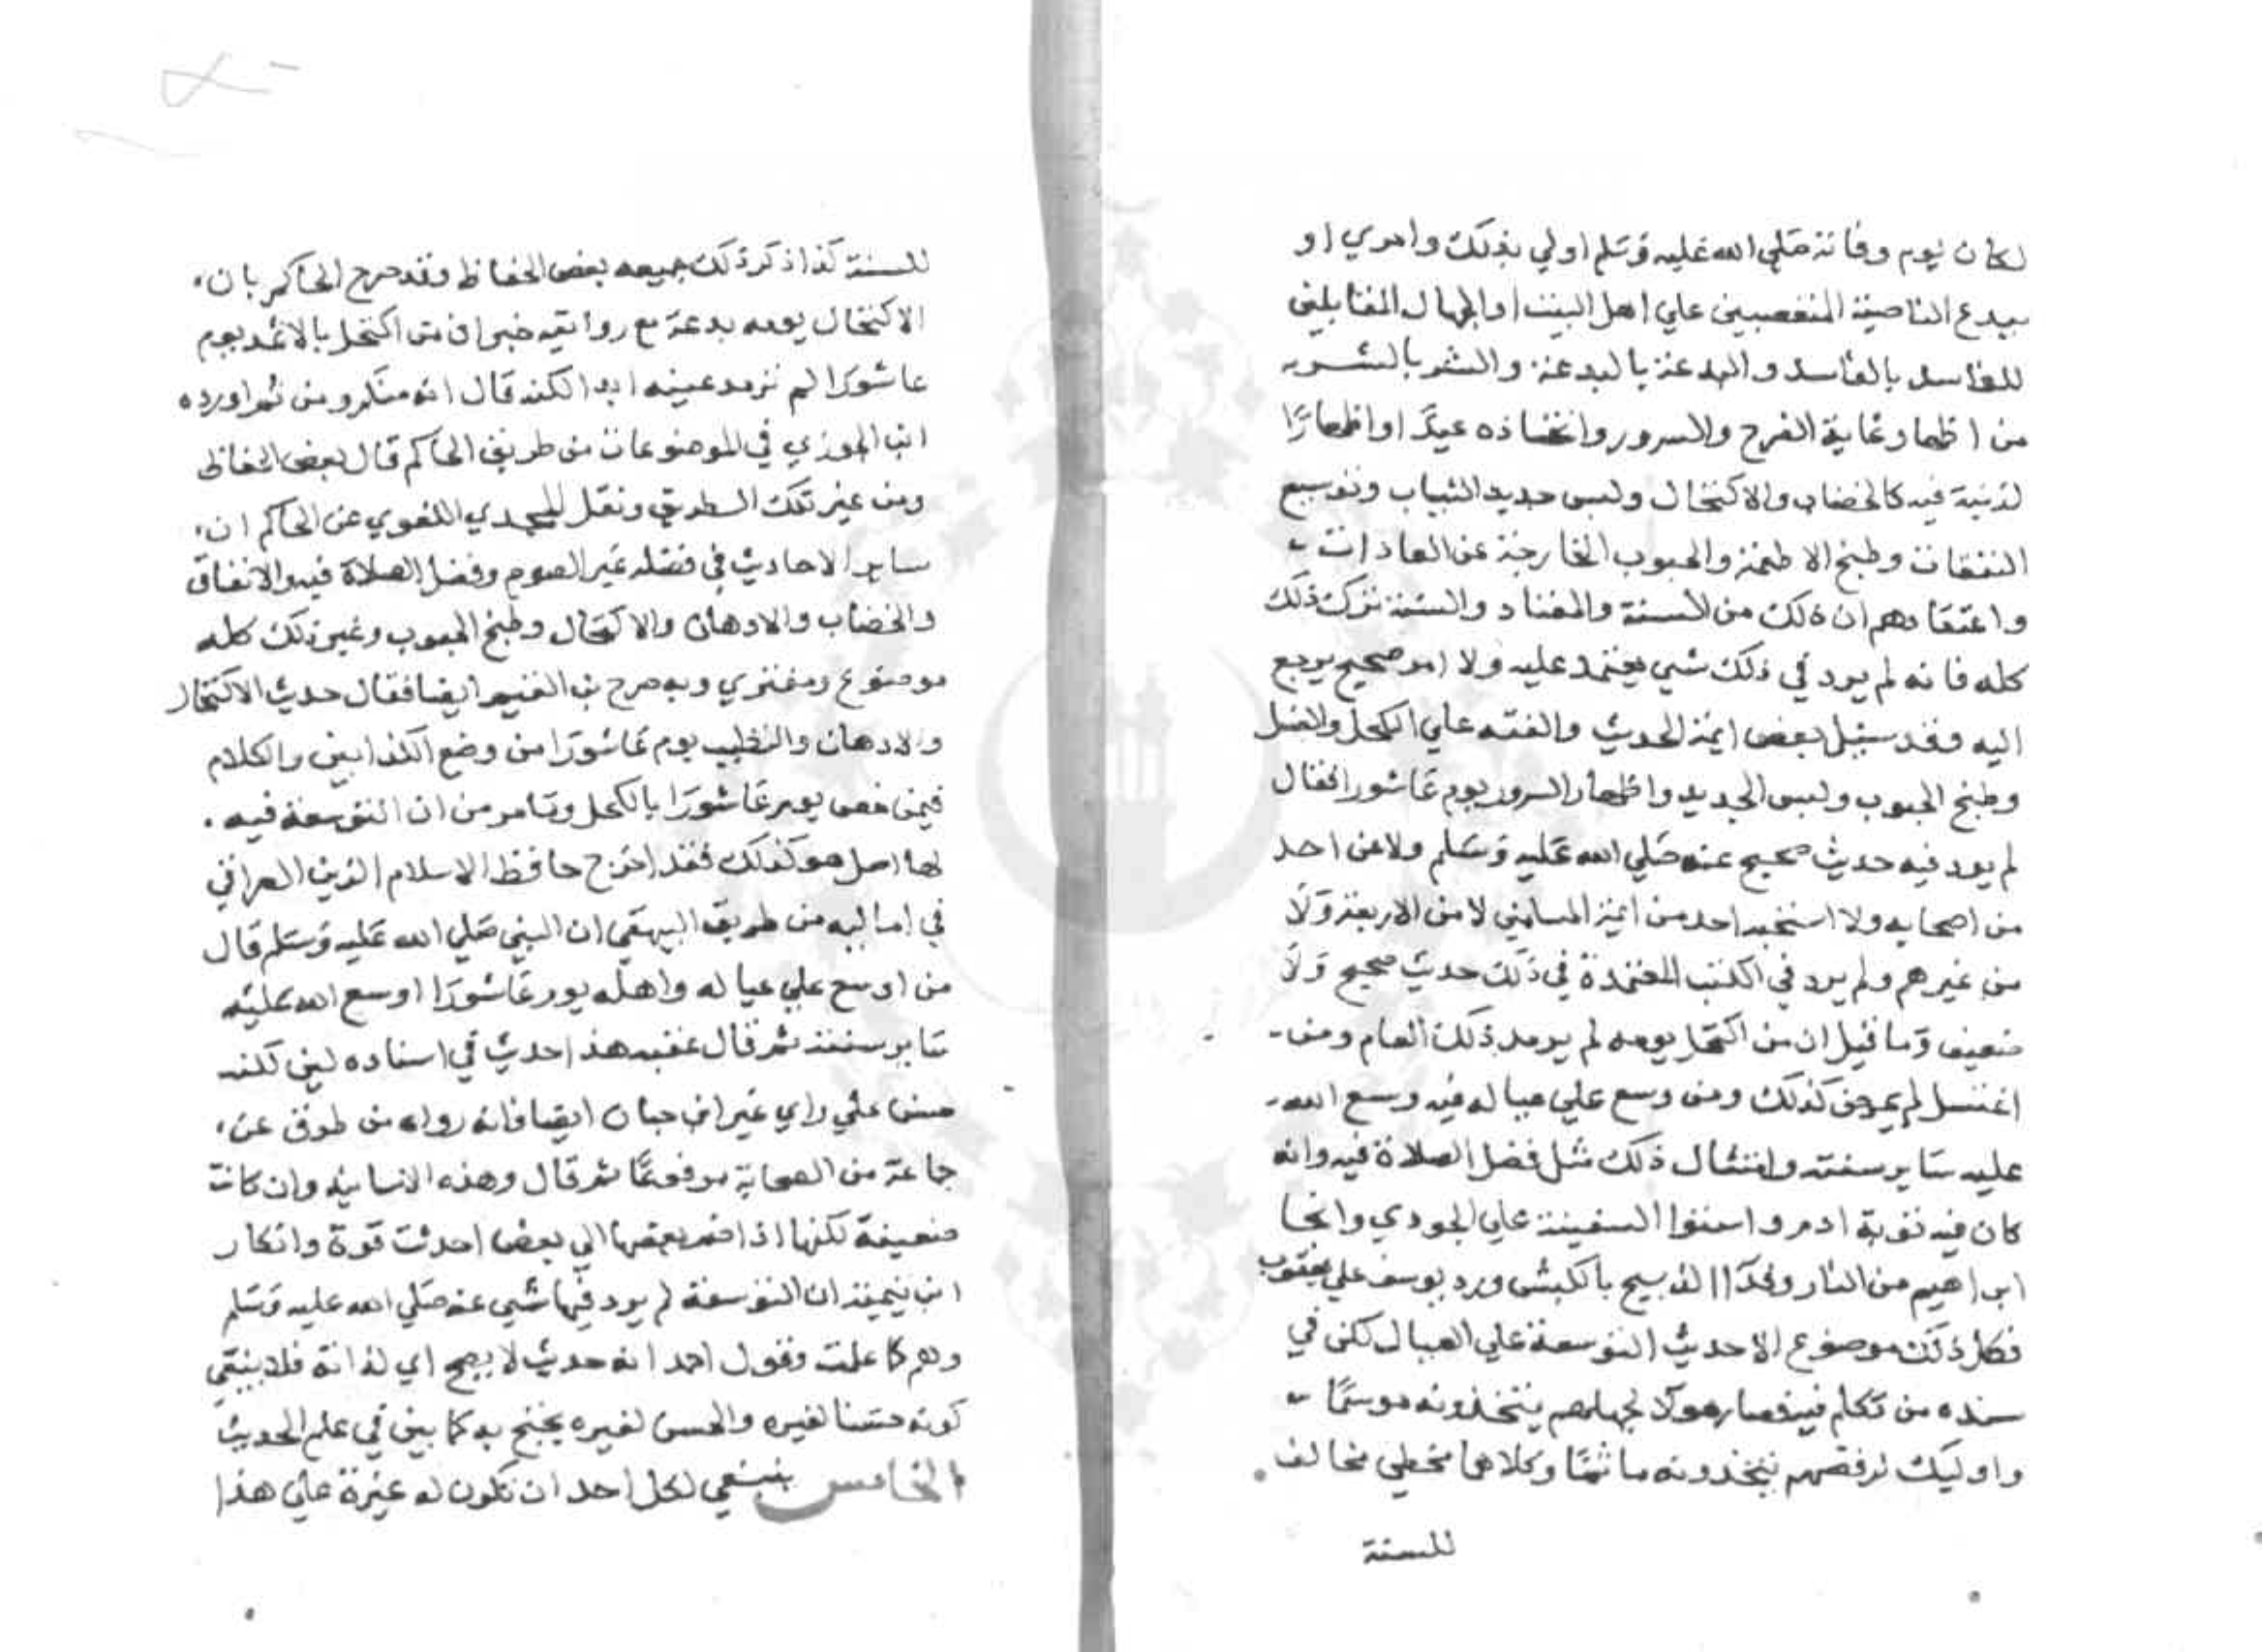 لكان يوم وفاته صلي الله عليه وسلم اولي بذلك واحري او
ببدع الناصبة المتعصبين علي اهل البيت او الجهال المقابلين
للفاسد بالفاسد والبدعة بالبدعة والشر بالشر
من اظهار غاية الفرح والسرور واتخاذه عيدًا او اظهار
الزينة فيه كالخضاب والاكتحال ولبس جديد الثياب وتوسيع
النفقات وطبخ الاطعمة والحبوب الخارجة عن العادات
واعتقادهم ان ذلك من السنة والمعتاد والسنة ترك ذلك
كله فانه لم يرد في ذلك شي يعتمد عليه ولا اثر صحيح يرجع
اليه وقد سيل بعض ايمة الحديث والفقه علي الكحل والغسل
وطبخ الحبوب ولبس الجديد واظهار السرور يوم عاشورا فقال
لم يرد فيه حديث صحيح عنه صلي الله عليه وسلم ولا عن احد
من اصحابه ولا استحبه احد من ايمة المسلمين لا من الاربعة ولا
من غيرهم ولم يرد في الكتب المعتمدة في ذلك حديث صحيح ولا
ضعيف وما قيل ان من اكتحل يومه لم يرمد ذلك العام ومن
اغتسل لم يمرض كذلك ومن وسع علي عياله فيه وسع الله
عليه ساير سنته وامثال ذلك مثل فضل الصلاة فيه وانه
كان فيه توبة ادم واستوا السفينة علي الجودي وانجا
ابراهيم من النار وفدا الذبيح بالكبش ورد يوسف علي يعقوب
فكل ذلك موضوع الا حديث التوسعة علي العيال لكن في
سنده من تكلم فيه فصار هولا لجهلهم يتخذونه موسمًا
واوليك لرفضهم يتخذونه ماتمًا وكلاهما مخطي مخالف
للسنة
للسنة كذا ذكر ذلك جميعه بعض الحفاظ وقد صرح الحاكم بان
الاكتحال يومه بدعة مع روايته خبر ان من اكتحل بالاثمد يوم
عاشورا لم ترمد عينه ابدا لكنه قال انه منكر ومن ثم اورده
ابن الجوزي في الموضوعات من طريق الحاكم قال بعض الحفاظ
ومن غير تلك الطريق ونقل المجدي اللغوي عن الحاكم ان
ساير الاحاديث في فضله غير الصوم وفضل الصلاة فيه والانفاق
والخضاب والادهان والاكتحال وطبخ الحبوب وغير ذلك كله
موضوع ومفتري وبه صرح بن القيم ايضا فقال حديث الاكتحال
والادهان والتطيب يوم عاشورا من وضع الكذابين والكلام
فيمن خص يوم عاشورا بالكحل وما مر من ان التوسعة فيه
لها اصل هو كذلك فقد اخرج حافظ الاسلام الزين العراقي
في اماليه من طريق البيهقي ان النبي صلي الله عليه وسلم قال
من اوسع علي عياله واهله يوم عاشورا اوسع الله عليه
ساير سنته ثم قال عقبه هذا حديث في اسناده لين لكنه
حسن علي راي غير ابن حبان ايضا فانه رواه من طرق عن
جماعة من الصحابة مرفوعًا ثم قال وهذه الاسانيد وان كانت
ضعيفة لكنها اذا ضم بعضها الي بعض احدثت قوة وانكار
ابن تيمية ان التوسعة لم يرد فيها شي عنه صلي الله عليه وسلم
وهم كما علمت وقول احمد انه حديث لا يصح اي لذاته فلا ينفي
كونه حسنا لغيره والحسن لغيره يحتج به كما بين في علم الحديث
الخامس ينبغي لكل احد ان تكون له غيرة علي هذا